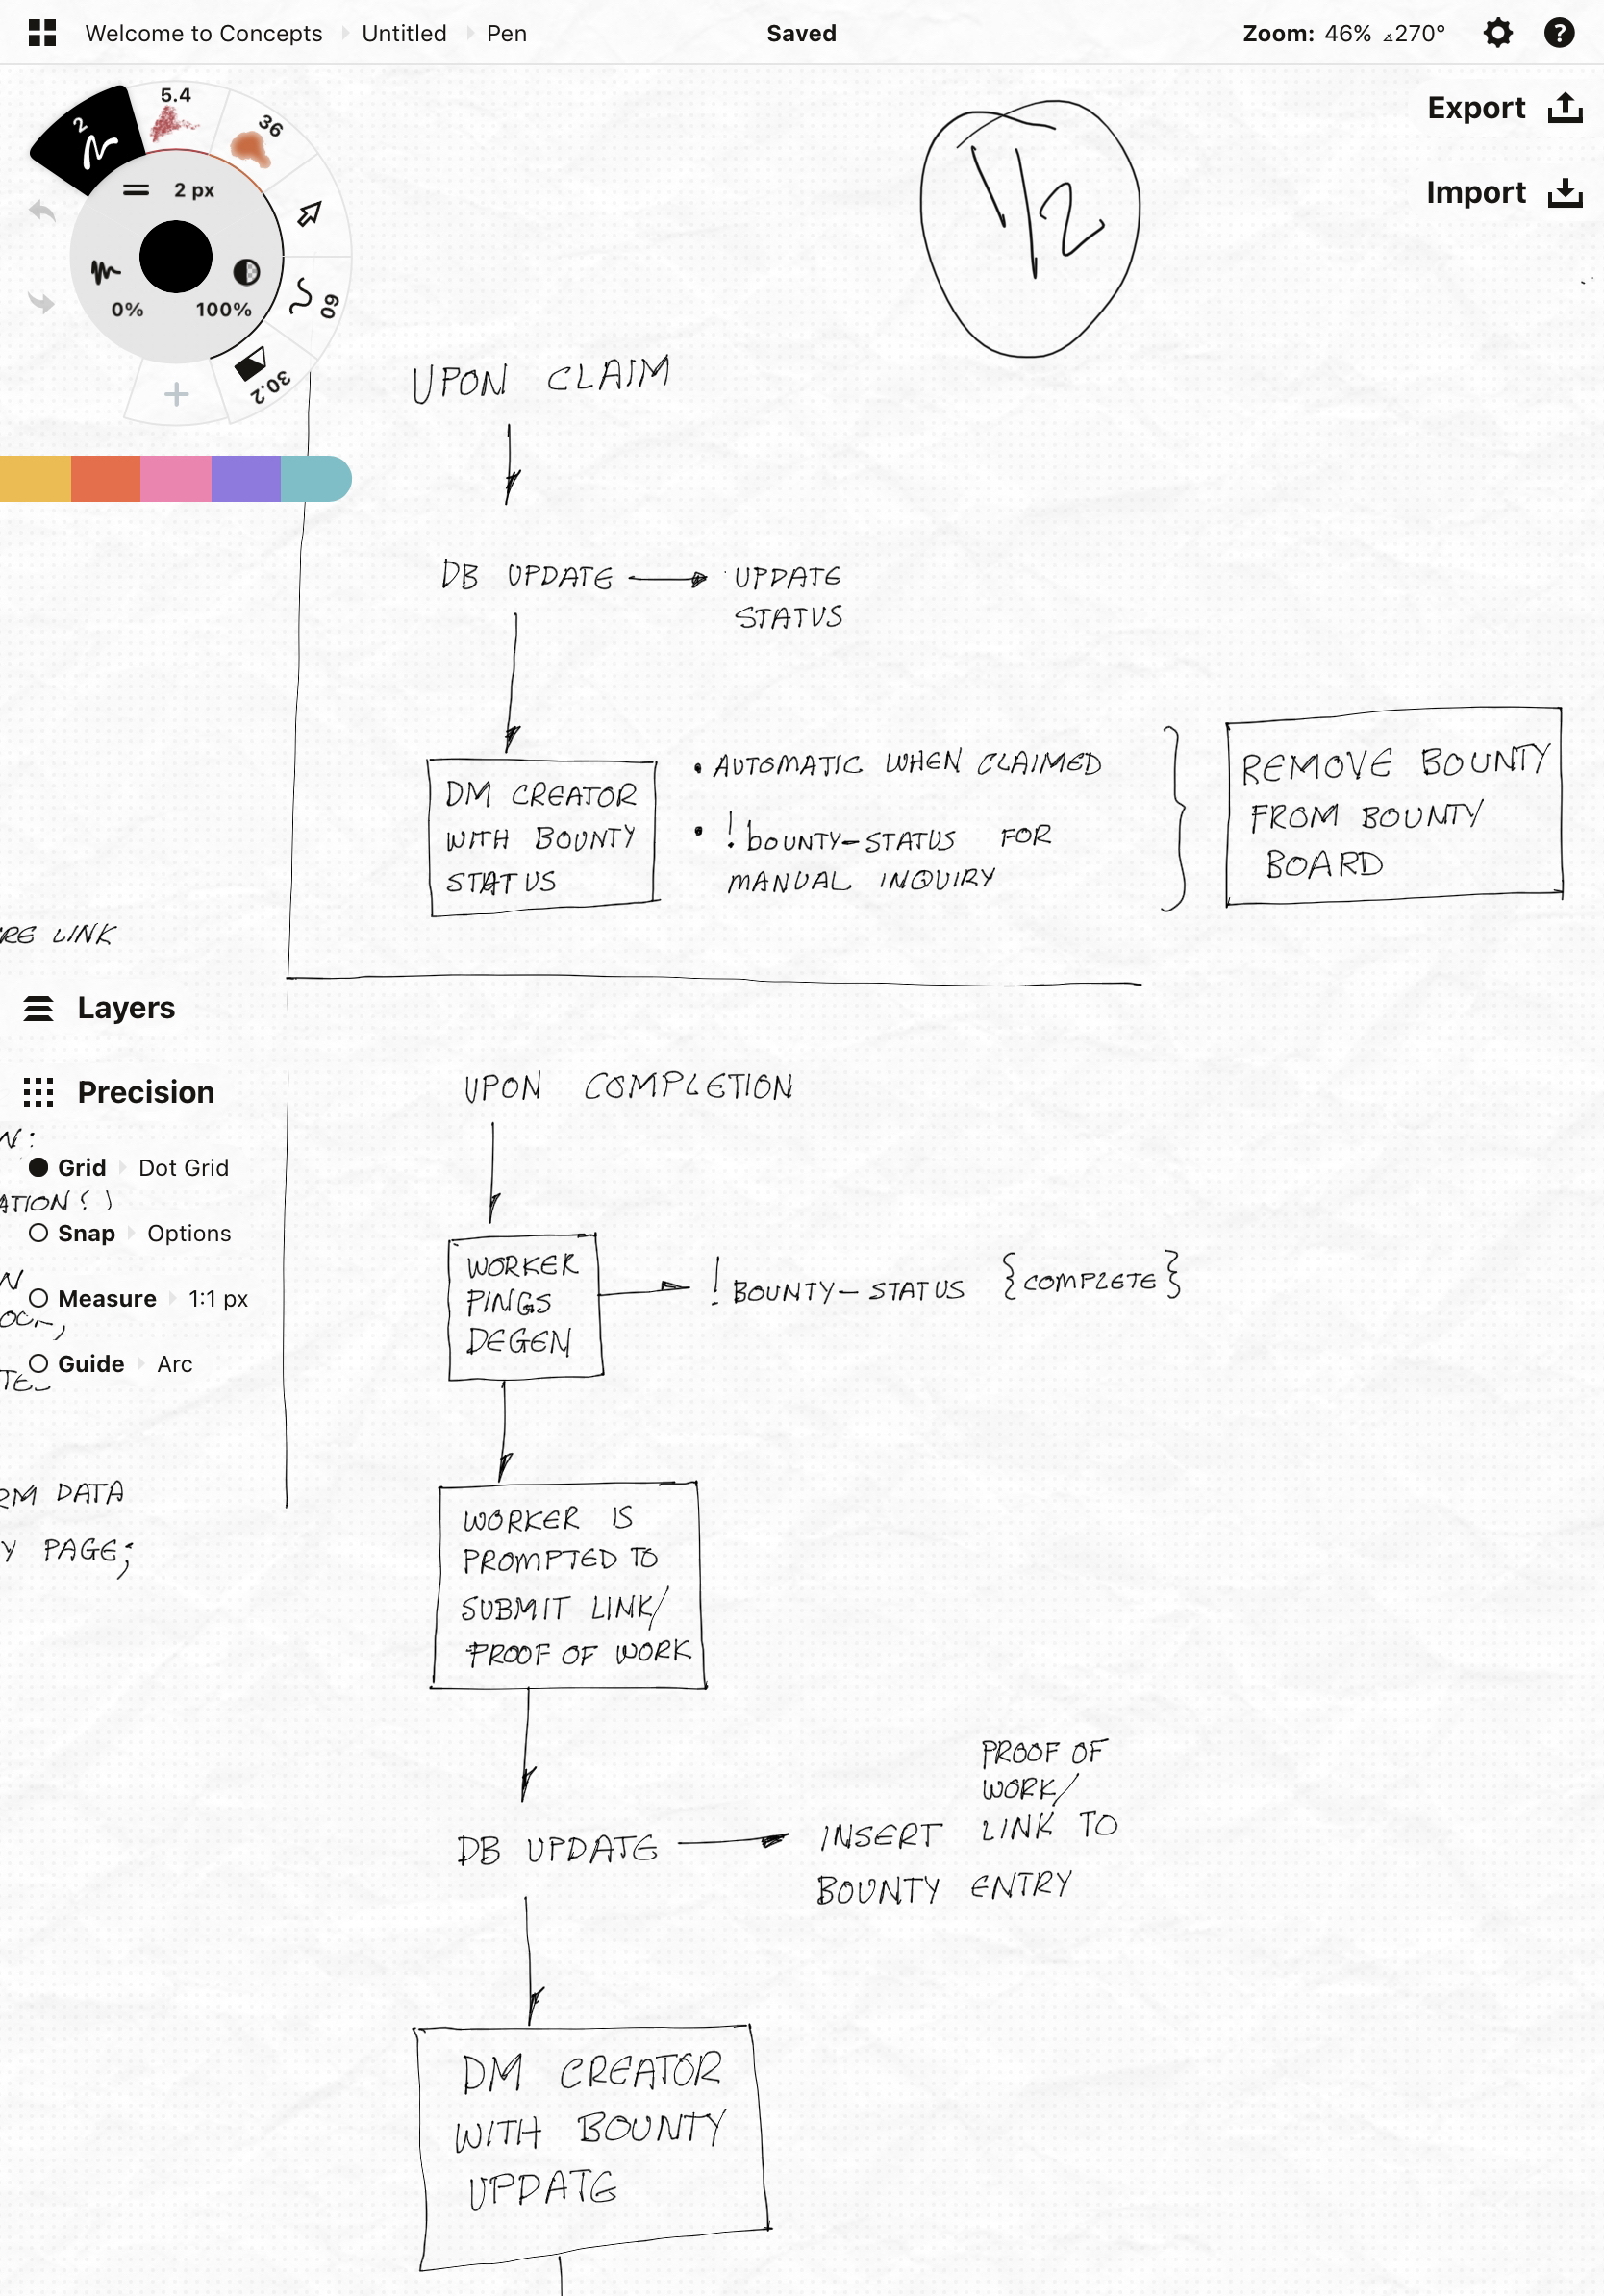 Welcome to Concepts Untitled Pen
Saved
Zoom: 46% ∡270°
?
Export
Import
2
5.4
36
2 px
0%
100%
60
30.2
+
1/2
UPON CLAIM
DB UPDATE
UPDATE
STATUS
DM CREATOR
WITH BOUNTY
STATUS
• AUTOMATIC WHEN CLAIMED
• !BOUNTY-STATUS FOR
MANUAL INQUIRY
REMOVE BOUNTY
FROM BOUNTY
BOARD
RE LINK
Layers
Precision
N:
Grid Dot Grid
ATION
Snap Options
N
Measure 1:1 px
Guide Arc
TE
RM DATA
Y PAGE;
UPON COMPLETION
WORKER
PINGS
DEGEN
!BOUNTY-STATUS {COMPLETE}
WORKER IS
PROMPTED TO
SUBMIT LINK/
PROOF OF WORK
DB UPDATE
PROOF OF
WORK/
INSERT LINK TO
BOUNTY ENTRY
DM CREATOR
WITH BOUNTY
UPDATE